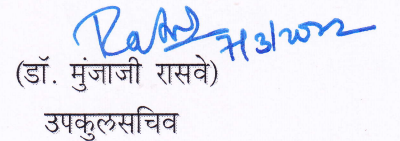 7/3/2022
(डॉ. मुंजाजी रासवे)
उपकुलसचिव